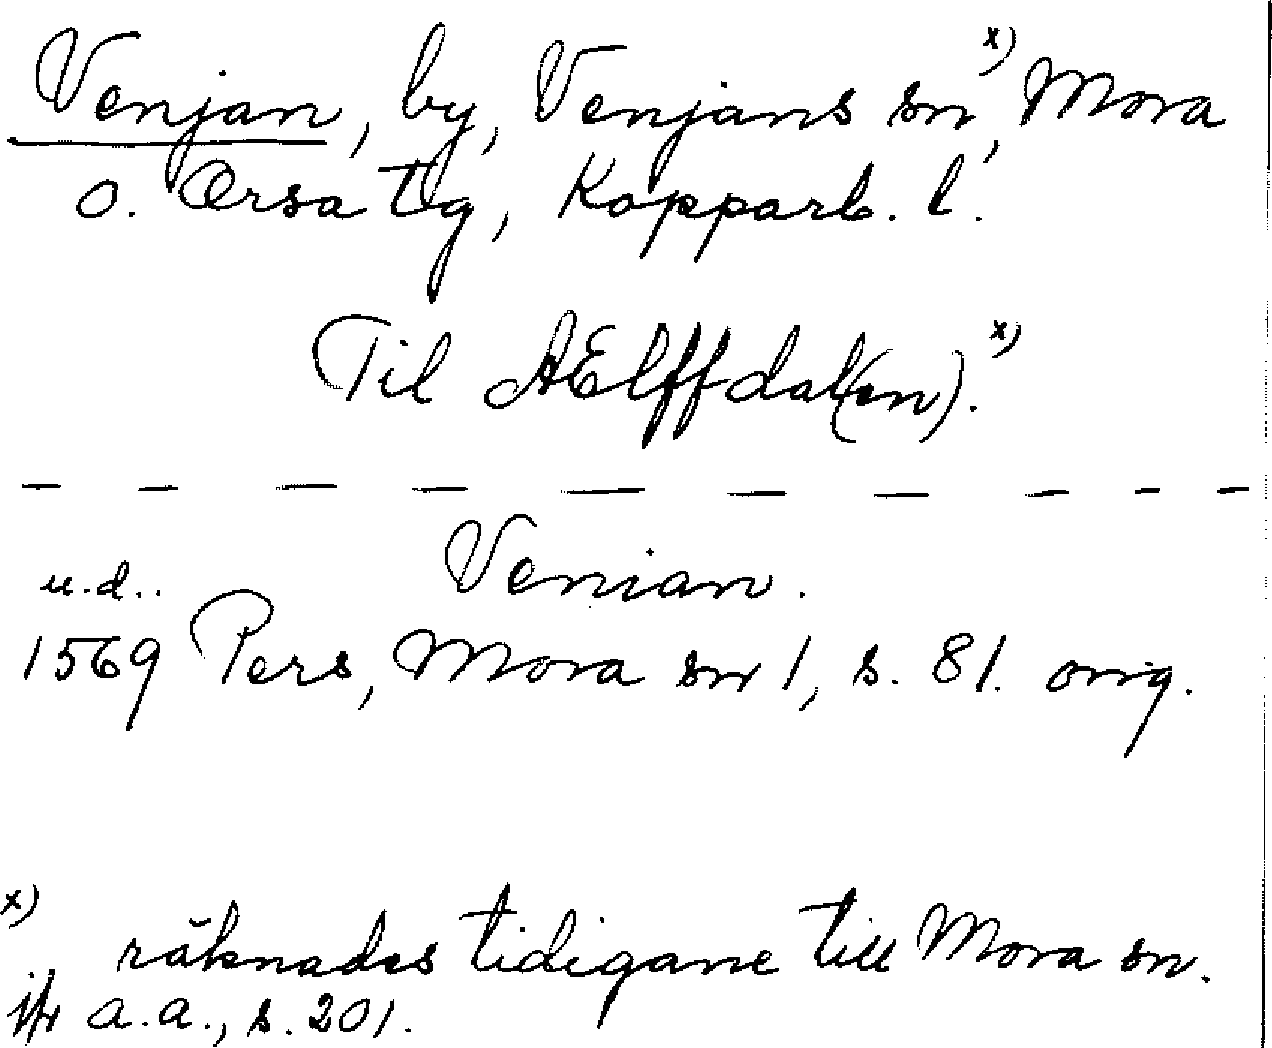 Venjan, by, Venjans sn,x) Mora
o. Orsa tg, Kopparb. l.
Til AElffdal(en).x)
Venian.
u.d..
1569 Pers, Mora sn 1, s. 81. orig.
x) räknades tidigare till Mora sn.
jfr a.a., s. 201.